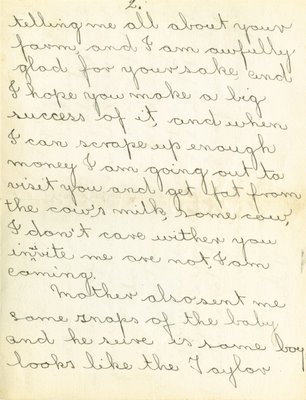 2.
telling me all about your
farm, and I am awfully
glad for your sake, and
I hope you make a big
success of it, and when
I can scrape up enough
money I am going out to
visit you and get fat from
the cow's milk, some cow,
I don't care wither you
invite me are not, I am
coming.
Mother also sent me
some snaps of the baby
and he sure is some boy
looks like the Taylor